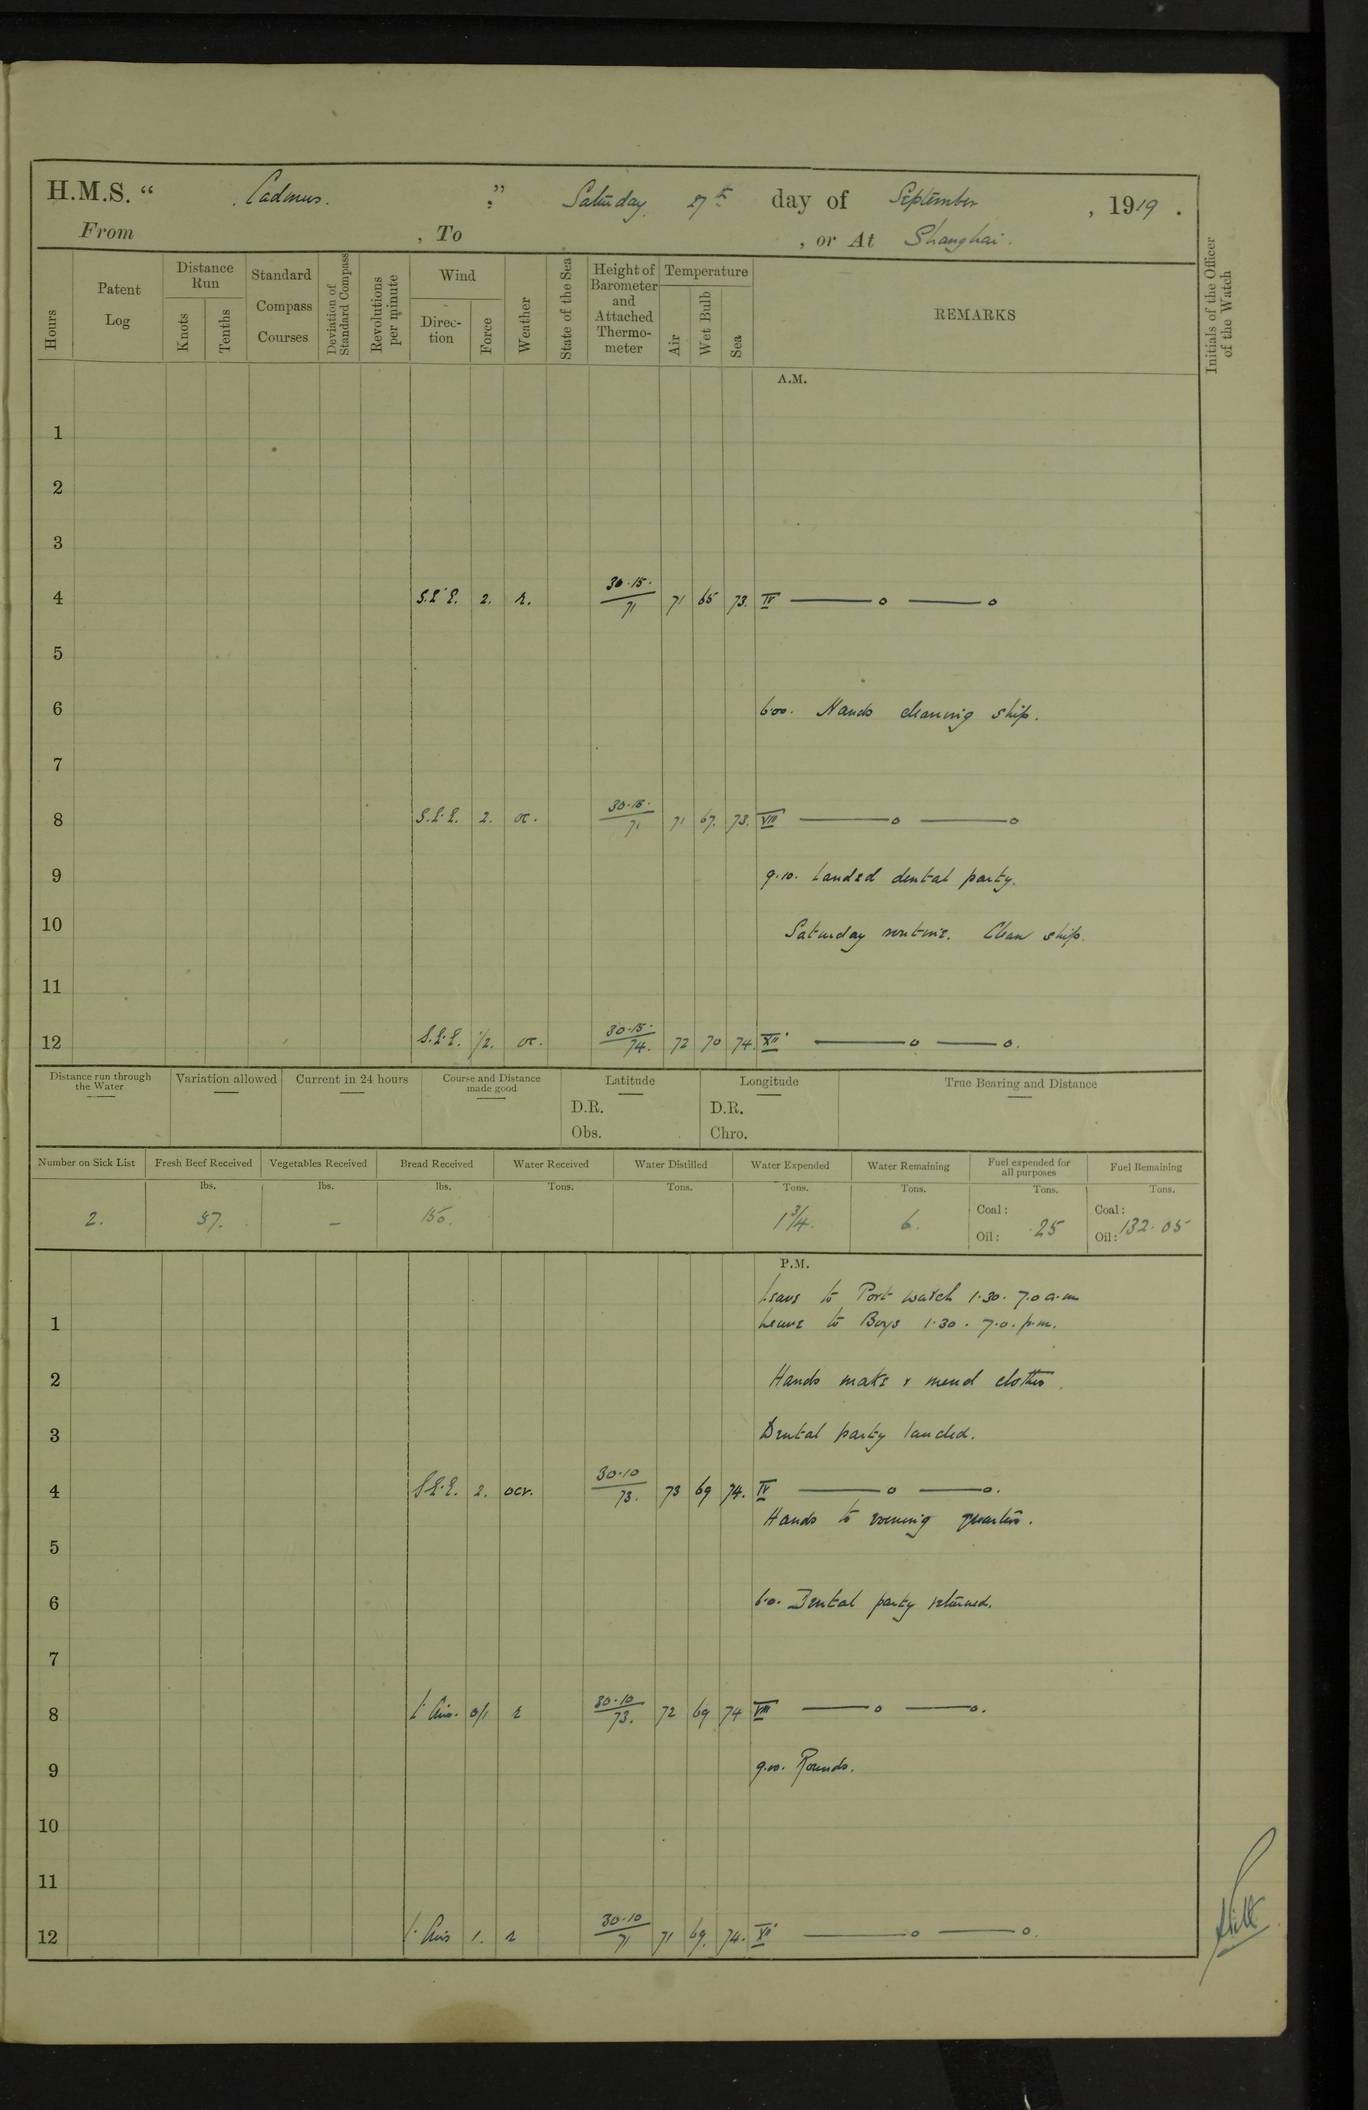 H.M.S. “ Cadmus. ” ; Saturday 27th day of September , 1919 .
From , To , or At Shanghai.
Hours
Patent Log
Distance Run
Knots
Tenths
Standard Compass Courses
Deviation of Standard Compass
Revolutions per minute
Wind
Direc-tion
Force
Weather
State of the Sea
Height of Barometer and Attached Thermo-meter
Temperature
Air
Wet Bulb
Sea
REMARKS
Initials of the Officer of the Watch
A.M.
1
2
3
4 S.E'E. 2. r. 30.15. / 71 71 65 73. IV —— o —— o
5
6 6.00. Hands cleaning ship.
7
8 S.E.E. 2. oc. 30.15. / 71 71 67. 73. VIII —— o —— o
9 9.10. Landed dental party.
10 Saturday routine. Clean ship.
11
12 S.E.E. 1/2. oc. 30.15. / 74. 72 70 74. XII —— o —— o.
Distance run through the Water
Variation allowed
Current in 24 hours
Course and Distance made good
Latitude
D.R.
Obs.
Longitude
D.R.
Chro.
True Bearing and Distance
Number on Sick List
Fresh Beef Received
Vegetables Received
Bread Received
Water Received
Water Distilled
Water Expended
Water Remaining
Fuel expended for all purposes
Fuel Remaining
lbs. lbs. lbs. Tons. Tons. Tons. Tons. Tons. Tons.
2. 57. – 150. 1 3/4. 6. Coal: Oil: .25 Coal: Oil: 132.05
P.M.
Leave to Port watch 1.30. 7.0 a.m
1 Leave to Boys 1.30. 7.0. p.m.
2 Hands make & mend clothes.
3 Dental party landed.
4 S.E.E. 2. ocr. 30.10 / 73. 73 69 74. IV —— o —— o.
Hands to evening quarters.
5
6 6.0. Dental party returned.
7
8 Lt Airs. 0/1 r 30.10 / 73. 72 69 74 VIII —— o —— o.
9 9.00. Rounds.
10
11
12 Lt Airs 1. r 30.10 / 71 71 69. 74. XII —— o —— o.